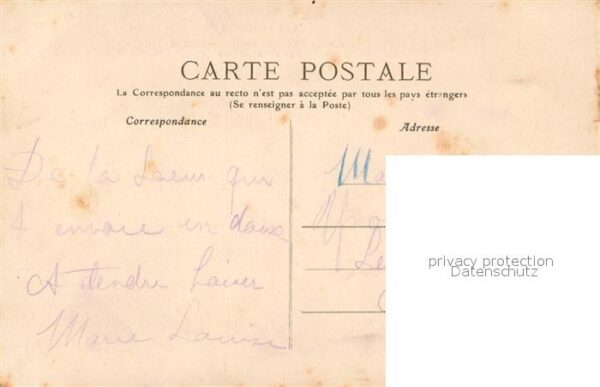 CARTE POSTALE
La Correspondance au recto n'est pas acceptée par tous les pays étrangers
(Se renseigner à la Poste)
Correspondance
Adresse
De ta Soeur qui
t envoie un doux
et tendre baiser
Marie Louise
privacy protection
Datenschutz